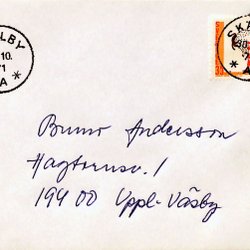 LBY
10.
71
A
SKÄ
30.
A
Bruno Andersson
Hagtornsv. 1
194 00 Uppl-Väsby